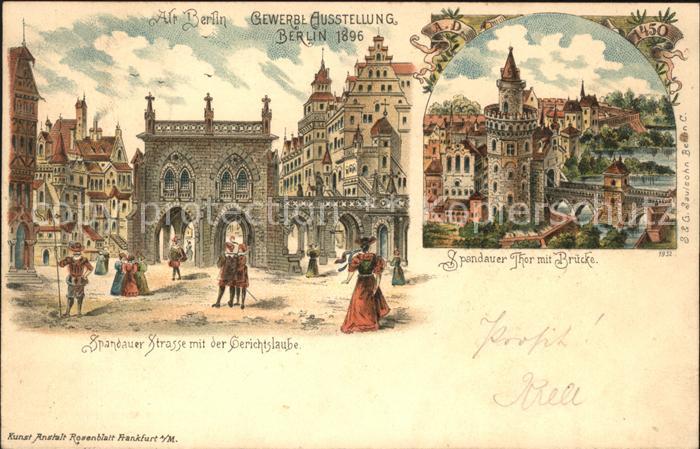 Alt Berlin
GEWERBE AUSSTELLUNG
BERLIN 1896
A.D.
1450
Spandauer Thor mit Brücke.
1932
S. & G. Saulsohn, Berlin C.
Spandauer Strasse mit der Gerichtslaube.
Prosit!
Kunst Anstalt Rosenblatt Frankfurt a/M.
copyright Kopierschutz